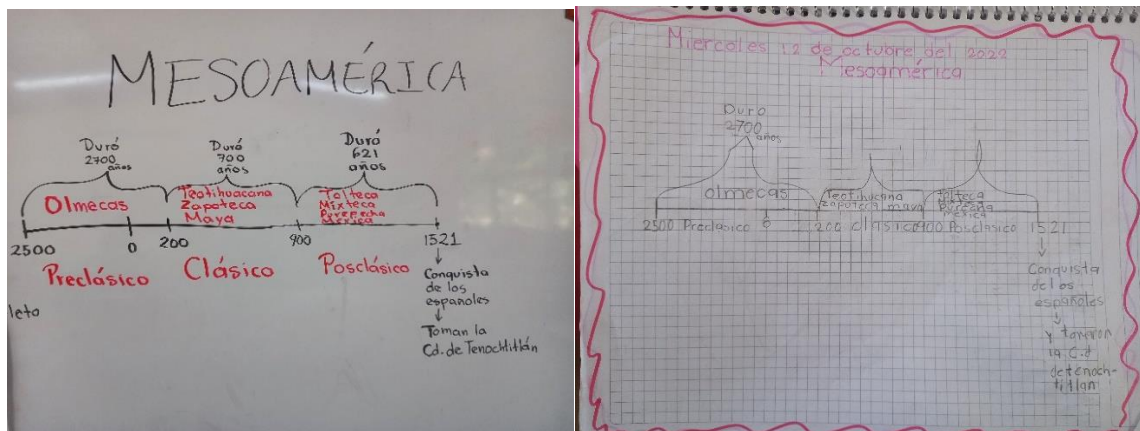 MESOAMÉRICA
Duró
2700
años
Duró
700
años
Duró
621
años
Olmecas
Teotihuacana
Zapoteca
Maya
Tolteca
Mixteca
Purepecha
Mexica
2500
0
200
900
1521
Preclásico
Clásico
Posclásico
Conquista
de los
españoles
Toman la
Cd. de Tenochtitlán
leto
Miércoles 12 de octubre del 2022
Mesoamérica
Duró
2700
años
olmecas
Teotihuacana
zapoteca maya
tolteca
purecha
mexica
2500 Preclasico 0 200 clásico 900 Posclasico 1521
Conquista
de los
españoles
y
la C.d
de tenoch-
titlan